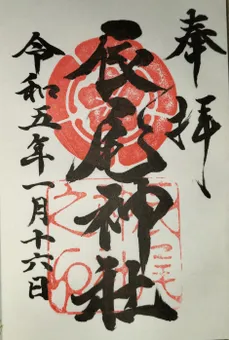 奉拝
辰尾神社
令和五年一月十六日